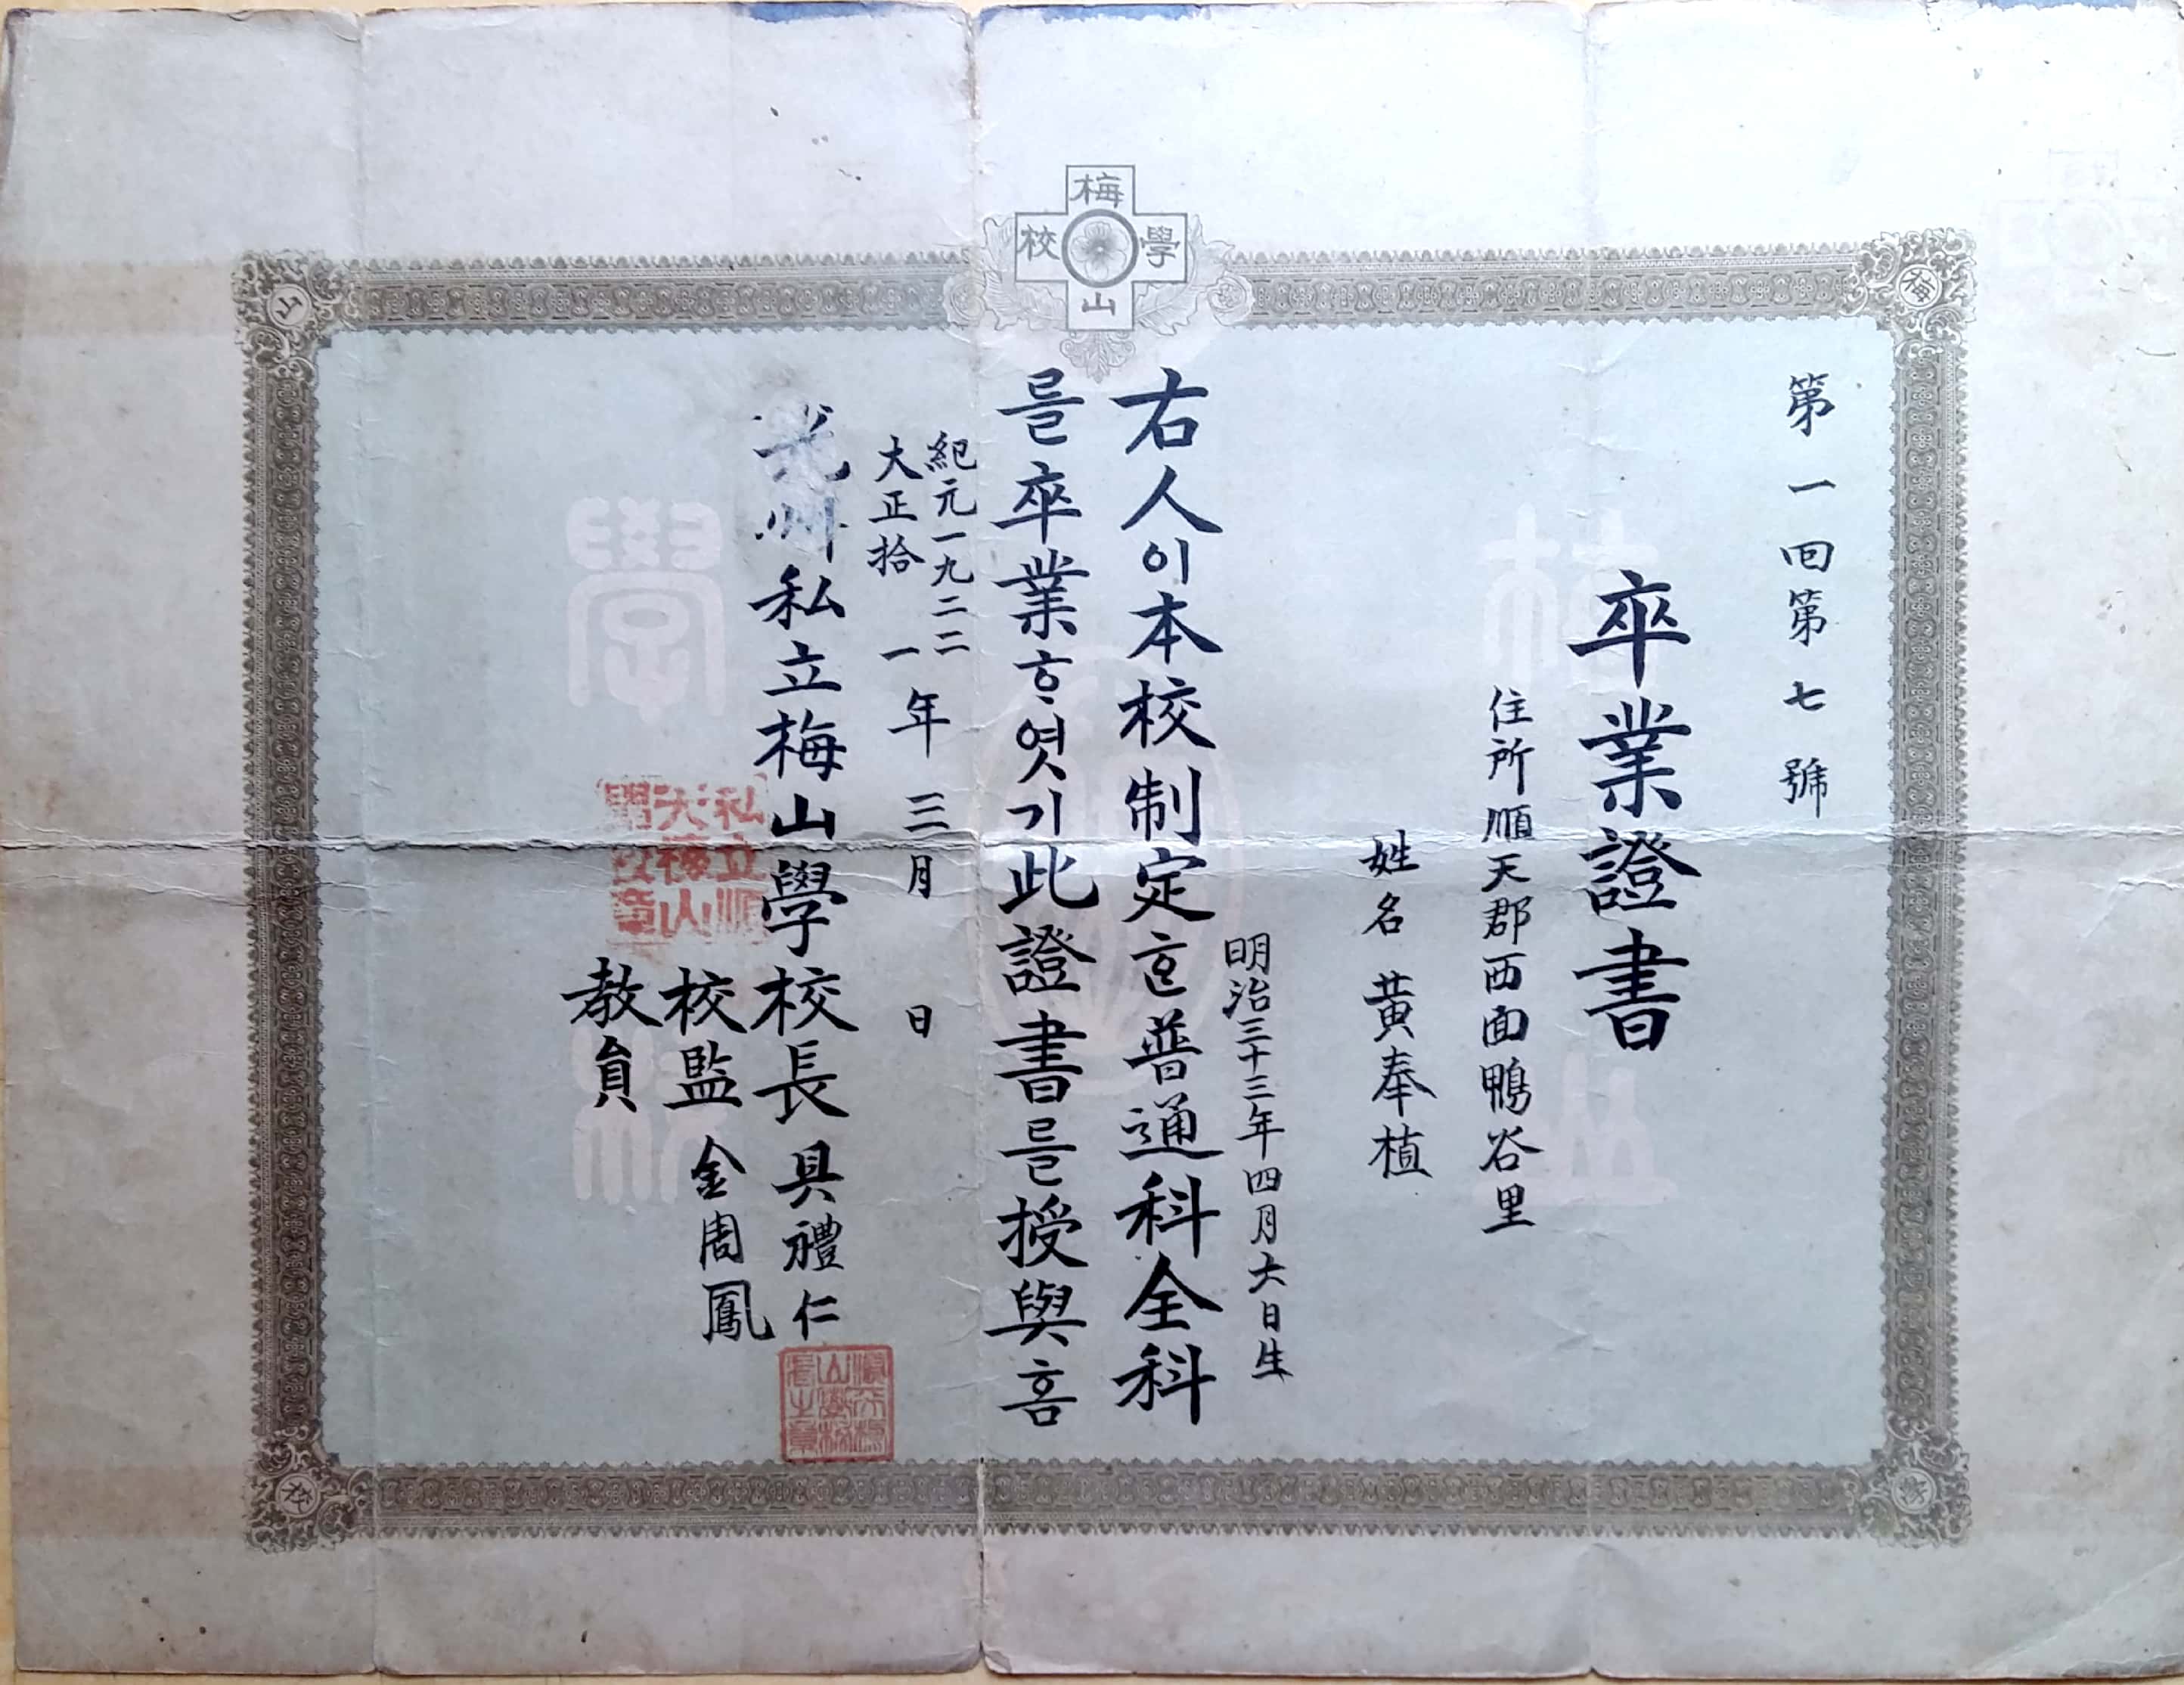 梅山學校
第一回第七號
卒業證書
住所順天郡西面鴨谷里
姓名黃奉植
明治三十三年四月六日生
右人이本校制定ᄒᆞᆫ普通科全科
를卒業ᄒᆞ엿기此證書를授與홈
紀元一九二二
大正拾一年三月 日
光州私立梅山學校校長具禮仁
校監金周鳳
教員